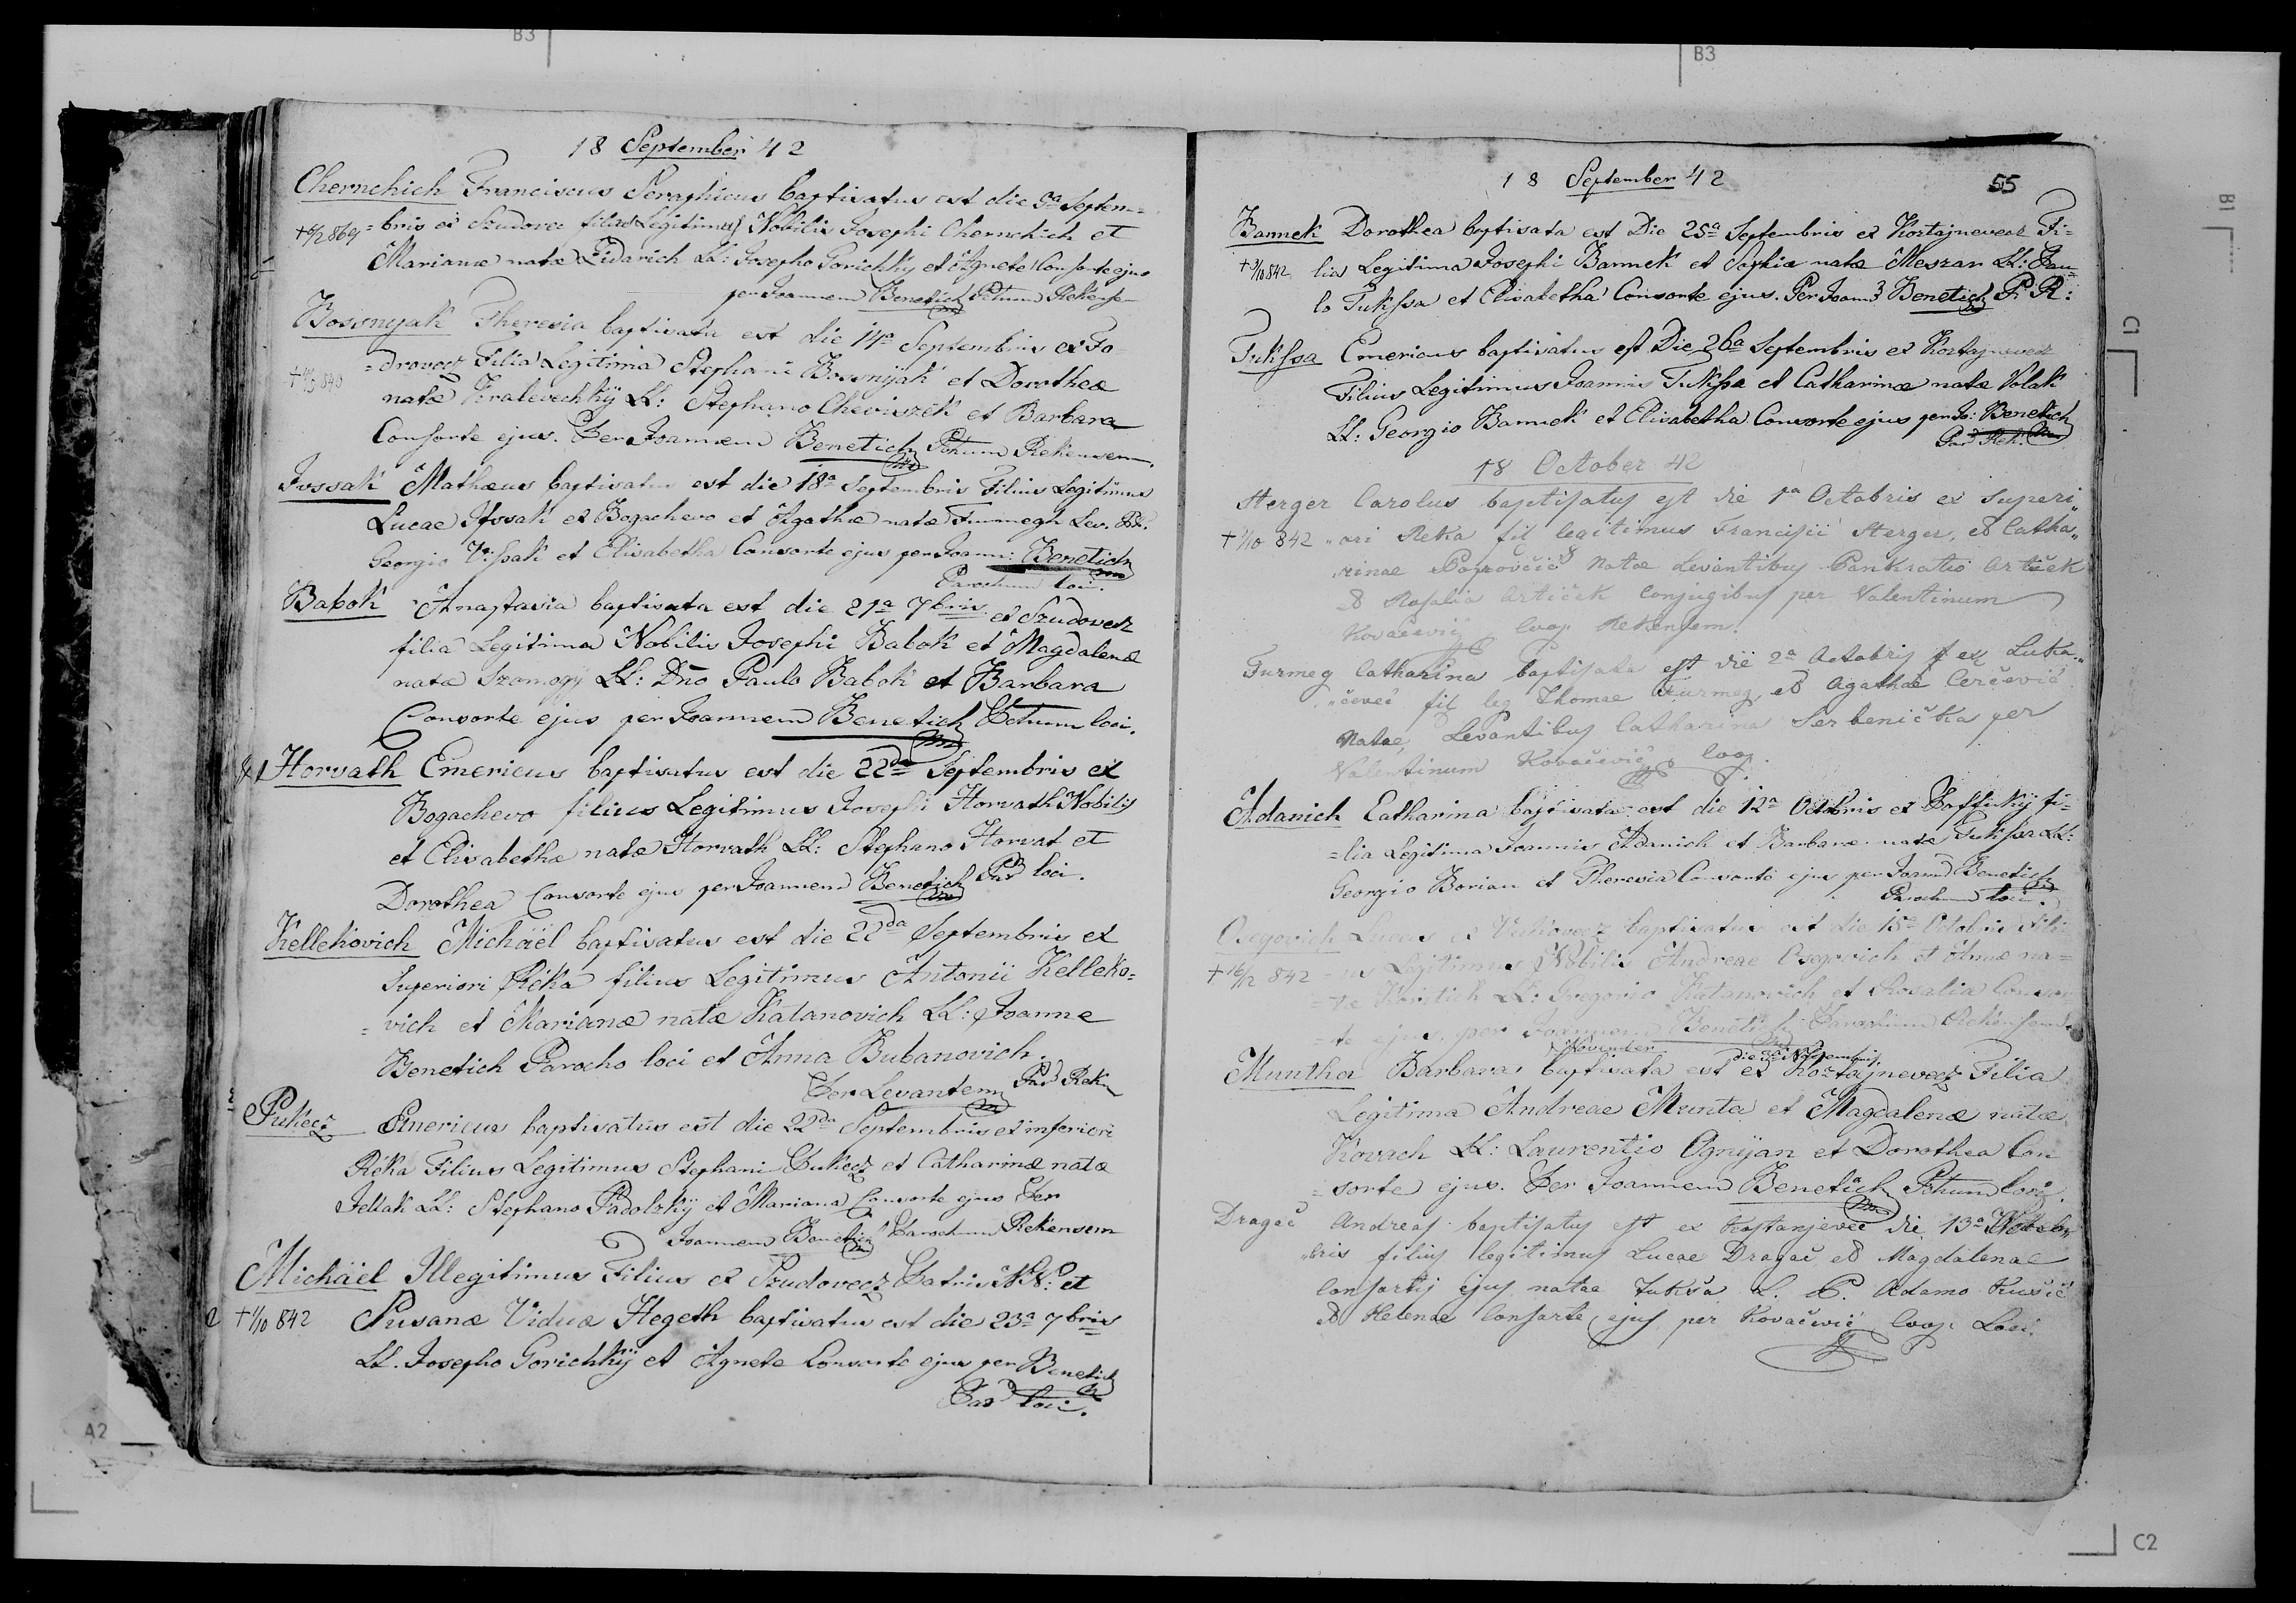 18 September 42
Chernchich Franciscus Seraphicus baptisatus est die 9a Septem=
=bris ex Szudovec filius Legitimus Nobilis Josephi Chernchich et
Marianæ natæ Eidarich LL: Josepho Gorichky et Agnete Consorte ejus
per Joannem Benetich Pchum Rekensem
Bossnyak Theresia baptisata est die 14a Septembris ex Fo
=drovecz Filia Legitima Stephani Bossnyak et Dorotheæ
natæ Kralevechkÿ LL: Stephano Cheviszek et Barbara
Consorte ejus. Per Joannem Benetich Pchum Rekensem.
Jussak Mathæus baptisatus est die 18a Septembris Filius Legitimus
Lucae Jussak ex Bogachevo et Agathæ natæ Furmegh Lev. PP.
Georgio Vissak et Elisabetha Consorte ejus per Joann: Benetich
Parochum loci.
Babok Anastasia baptisata est die 21a 7bris ex Szudovecz
filia Legitima Nobilis Josephi Babok et Magdalenæ
natæ Szomogy LL: Dno Paulo Babok et Barbara
Consorte ejus per Joannem Benetich Pchum loci.
Horvath Emericus baptisatus est die 22da Septembris ex
Bogachevo filius Legitimus Josephi Horvath Nobilis
et Elisabethæ natæ Horvath LL: Stephano Horvat et
Dorothea Consorte ejus per Joannem Benetich Par loci.
Kellekovich Michäel baptisatus est die 22da Septembris ex
Superiori Réka filius Legitimus Antonii Kelleko=
=vich et Marianæ natæ Katanovich LL: Joanne
Benetich Parocho loci et Anna Bubanovich.
Per Levantem Par Rek
Pukecz Emericus baptisatus est die 22da Septembris ex inferiori
Réka Filius Legitimus Stephani Pukecz et Catharinæ natæ
Jellak LL: Stephano Padolzkÿ et Mariana Consorte ejus Per
Joannem Benetich Parochum Rekensem
Michäel Illegitimus Filius ex Szudovecz Patris N.N: et
+ 1/10 842 Susanæ Viduæ Hegeth baptisatus est die 23a 7bris
LL. Josepho Gorichkÿ et Agnete Consorte ejus per Benetich
Par loci.
18 September 42
55
Bannek Dorothea baptisata est Die 25a Septembris ex Koztajnevecz Fi=
+ 3/10 842 lia Legitima Josephi Bannek et Sophiæ natæ Meszar LL: Pau=
lo Tukssa et Elisabetha Consorte ejus. Per Joann Benetich P. R:
Tukssa Emericus baptisatus est Die 26a Septembris ex Koztajnevecz
Filius Legitimus Joannis Tukssa et Catharinæ natæ Volak
LL: Georgio Bannek et Elisabetha Consorte ejus per Jo: Benetich
Par Rek.
18 October 42
Sterger Carolus baptisatus est die 1a Octobris ex Superi„
+ 7/10 842 „ori Reka fil legitimus Francisii Sterger, et Catha„
„rinae Popovčić Natae Levantibus Pankratio Artiček
et Rosalia Artiček Conjugibus per Valentinum
Kovačević Coop Rekensem.
Furmeg Catharina baptisata est die 2a Octobris ex Luka„
„čevec fil leg Thomae Furmeg, et Agathae Cerčević
Natae, Levantibus Catharina Serbenička per
Valentinum Kovačević Coop.
Adanich Catharina baptisata est die 12a Octobris ex fi=
=lia Legitima Joannis Adanich et Barbaræ natæ Tukssa LL:
Georgio Borian et Theresia Consorte ejus per Joann Benetich
Parochum loci.
Osegovich Lucas ex Vukovecz baptisatus est die 15a Octobris Fili
+ 16/12 842 s Legitimus Nobilis Andreae Osegovich et Annæ na=
=tæ LL: Gregorio Katanovich et Rosalia Conso
=te ejus per Joannem Benetich Parochum Rekensem
November
Muntha Barbara baptisata est ex Koztajnevecz Filia
Legitima Andreae Munta et Magdalenæ natæ
Kovach LL: Laurentio Ognÿan et Dorothea Con
=sorte ejus. Per Joannem Benetich Pchum loci.
Dragač Andreas baptisatus est ex Kostanjevec die 13a
„bris filius legitimus Lucae Dragač et Magdalenae
Consortis ejus natae Tukša L. P. Adamo Kušić
et Helenae Consorte ejus per Kovačević Coop. Loci.